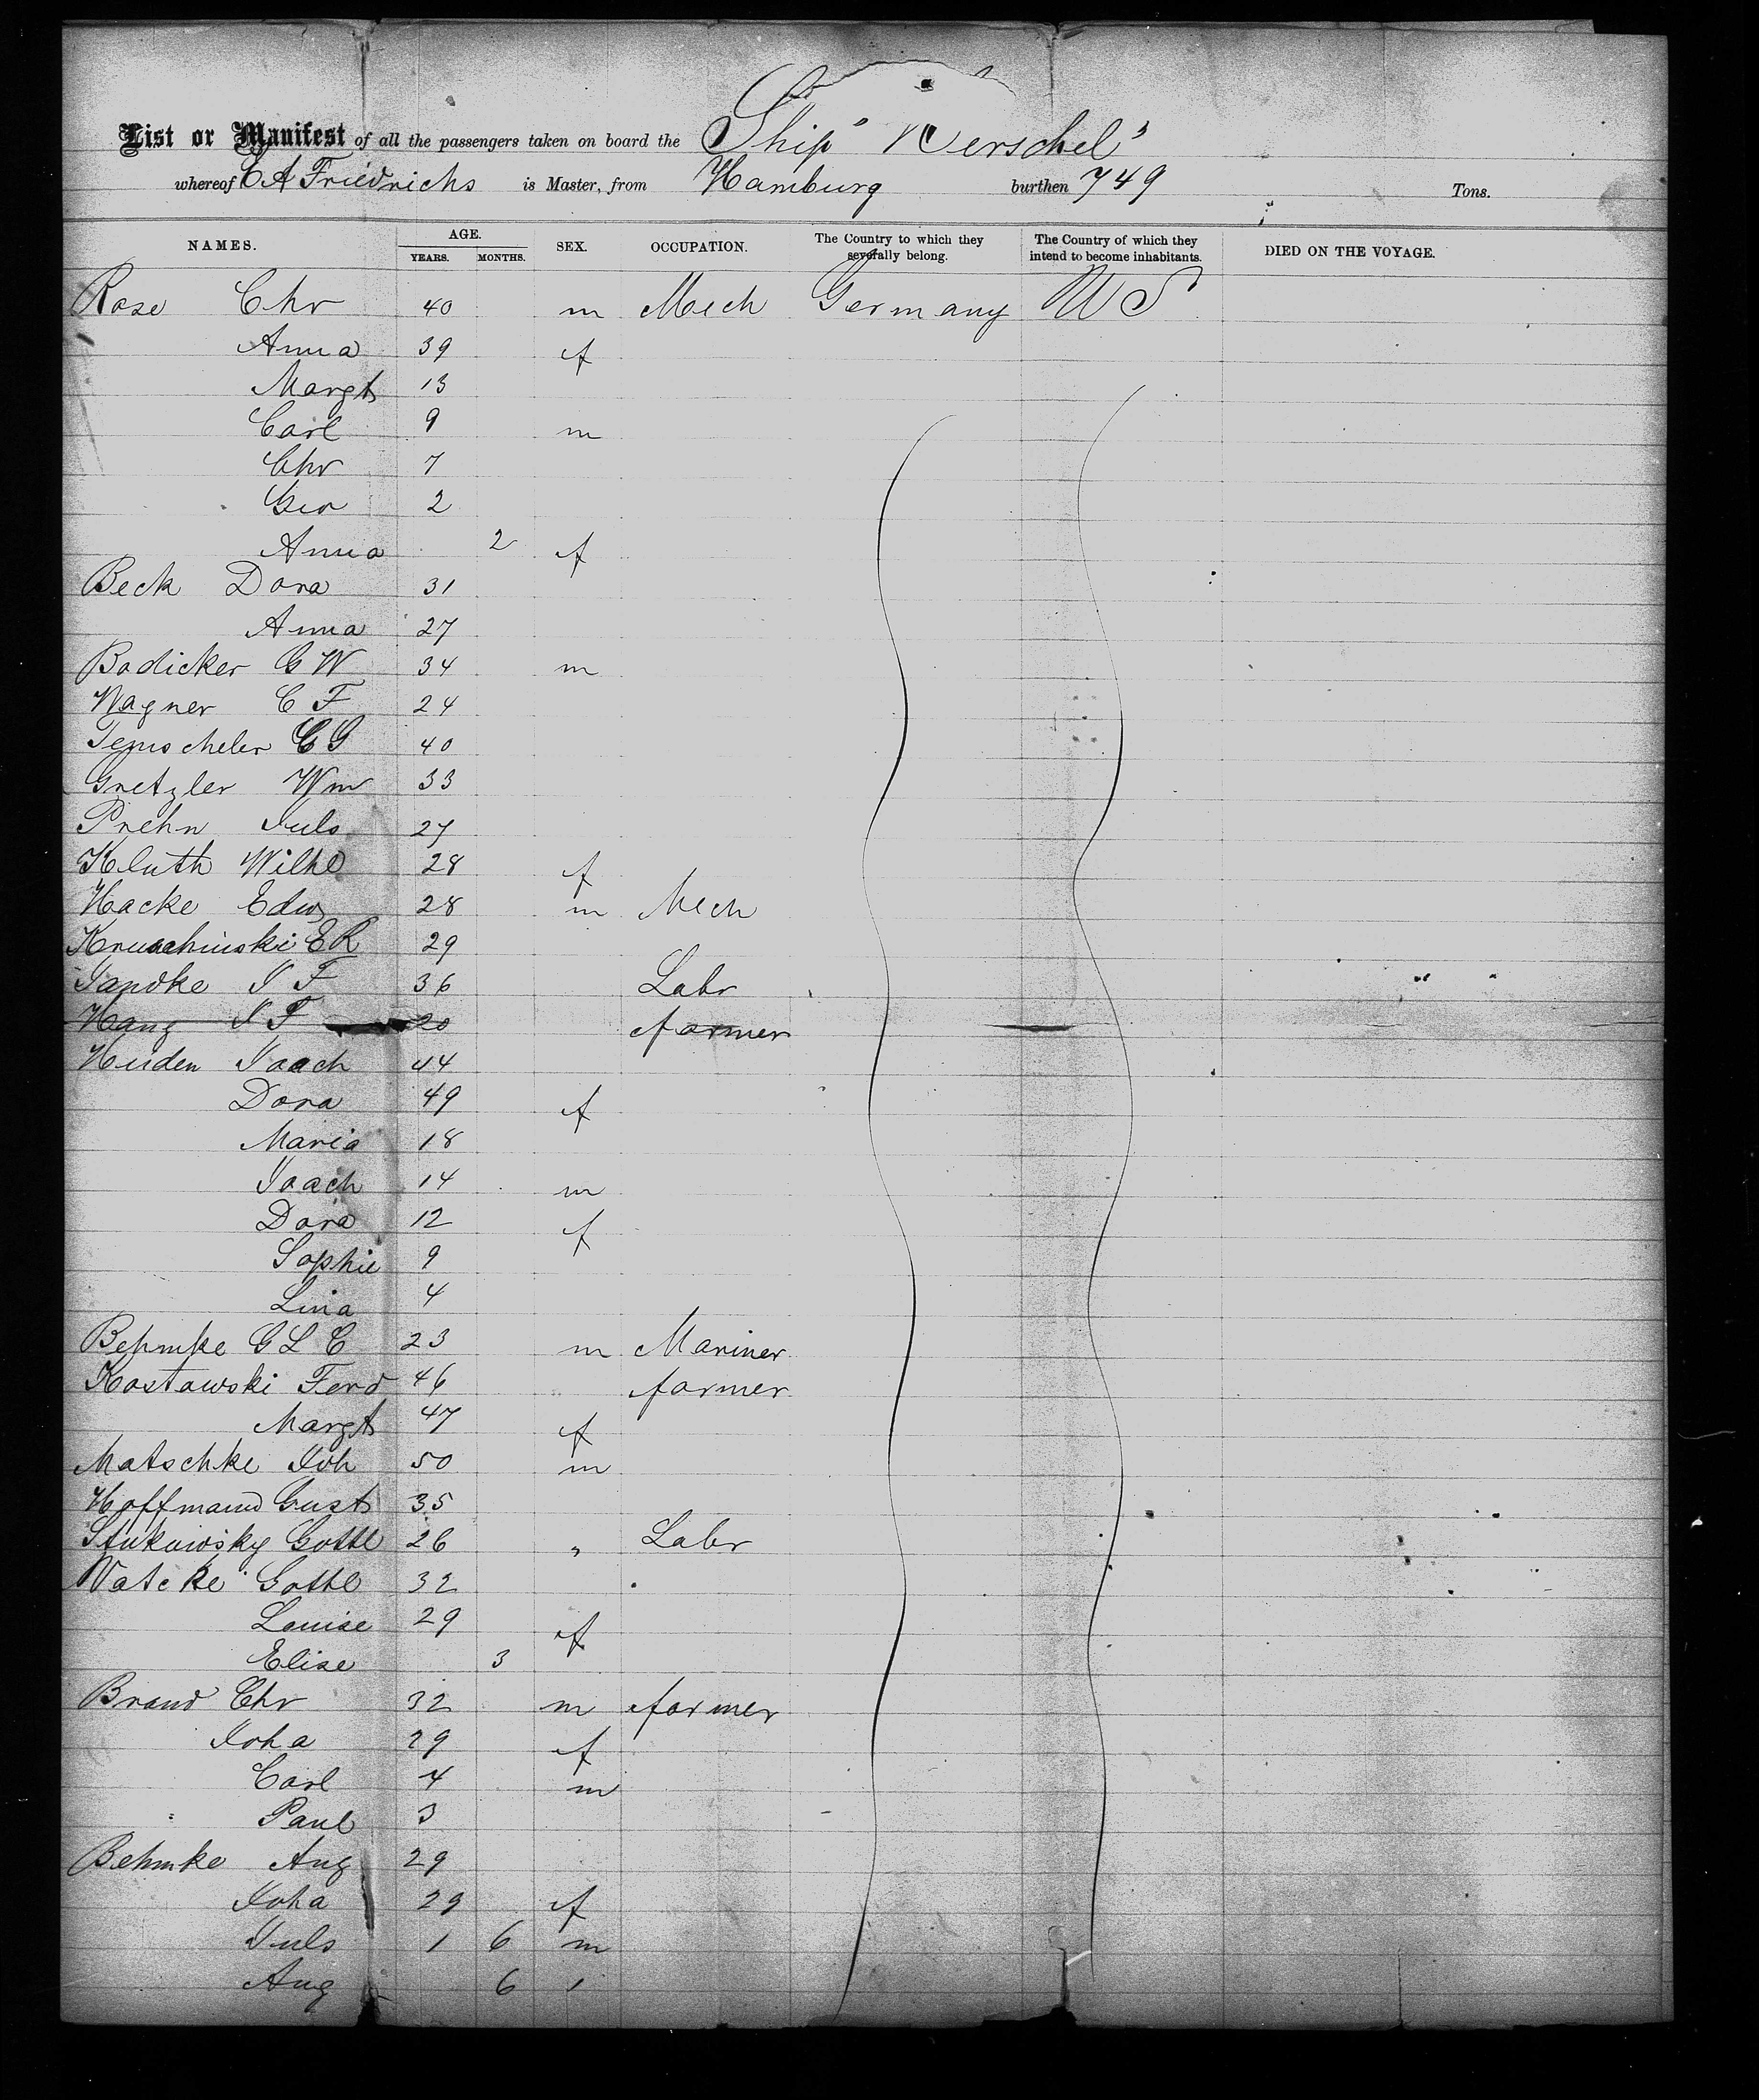 List or Manifest of all the passengers taken on board the Ship "Herschel"
whereof C A Friedrichs is Master, from Hamburg burthen 749 Tons.
NAMES. AGE. YEARS. MONTHS. SEX. OCCUPATION. The Country to which they severally belong. The Country of which they intend to become inhabitants. DIED ON THE VOYAGE.
Rose Chr 40 m Mech Germany U S
Anna 39 f
Margt 13
Carl 9 m
Chr 7
Geo 2
Anna 2 f
Beck Dora 31
Anna 27
Bodicker G W 34 m
Wagner C F 24
C G 40
Gretzler Wm 33
Prehn Juls 27
Kluth Wilhe 28 f
Hacke Edw 28 m Mech
E R 29
Jandke J F 36 Labr
Hang J F 20 farmer
Heiden Joach 44
Dora 49 f
Maria 18
Joach 14 m
Dora 12 f
Sophie 9
Lina 4
Behmke G L C 23 m Mariner
Kostowski Ferd 46 farmer
Margt 47 f
Matschke Joh 50 m
Hoffmann Gust 35
Stukowsky Gottl 26 " Labr
Watcke Gottl 32
Louise 29 f
Elise 3
Brand Chr 32 m farmer
Joha 29 f
Carl 4 m
Paul 3
Behmke Aug 29
Joha 29 f
Juls 1 6 m
Aug 6 "